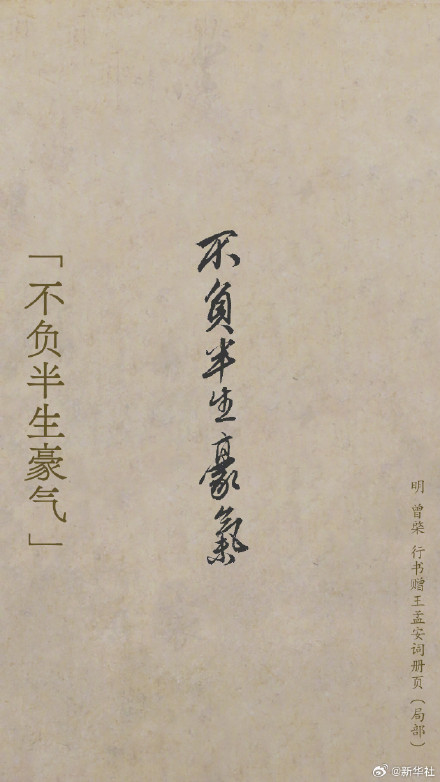 「不负半生豪气」
不負半生豪氣
明 曾棨 行书赠王孟安词册页（局部）
@新华社